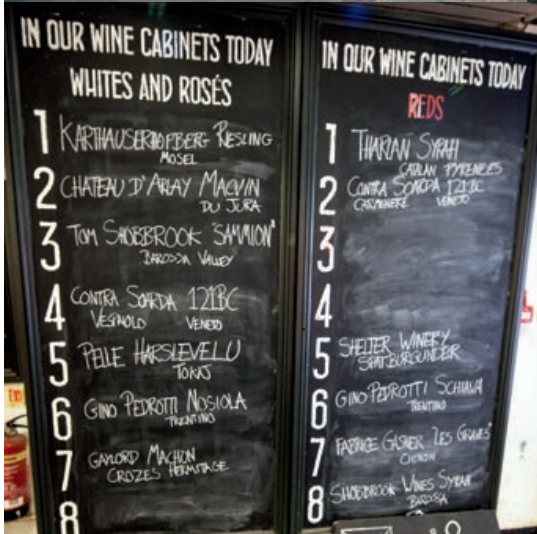 IN OUR WINE CABINETS TODAY
WHITES AND ROSÉS
1 KARTHAUSERHOFBERG RIESLING
MOSEL
2 CHATEAU D'ARLAY MACVIN
DU JURA
3 TOM SHOBBROOK "SAMMION"
BAROSSA VALLEY
4 CONTRA SOARDA 121BC
VESPAIOLO VENETO
5 PELLE HARSLEVELU
TOKAJ
6 GINO PEDROTTI NOSIOLA
TRENTINO
7 GAYLORD MACHON
CROZES HERMITAGE
8
IN OUR WINE CABINETS TODAY
REDS
1 THARIAN SYRAH
CATALAN PYRENEES
2 CONTRA SOARDA 121BC
CARMENERE VENETO
3
4
5 SHELTER WINERY
SPATBURGUNDER
6 GINO PEDROTTI SCHIAVA
TRENTINO
7 FABRICE GASNIER "LES GRAVES"
CHINON
8 SHOBBROOK WINES SYRAH
BAROSSA